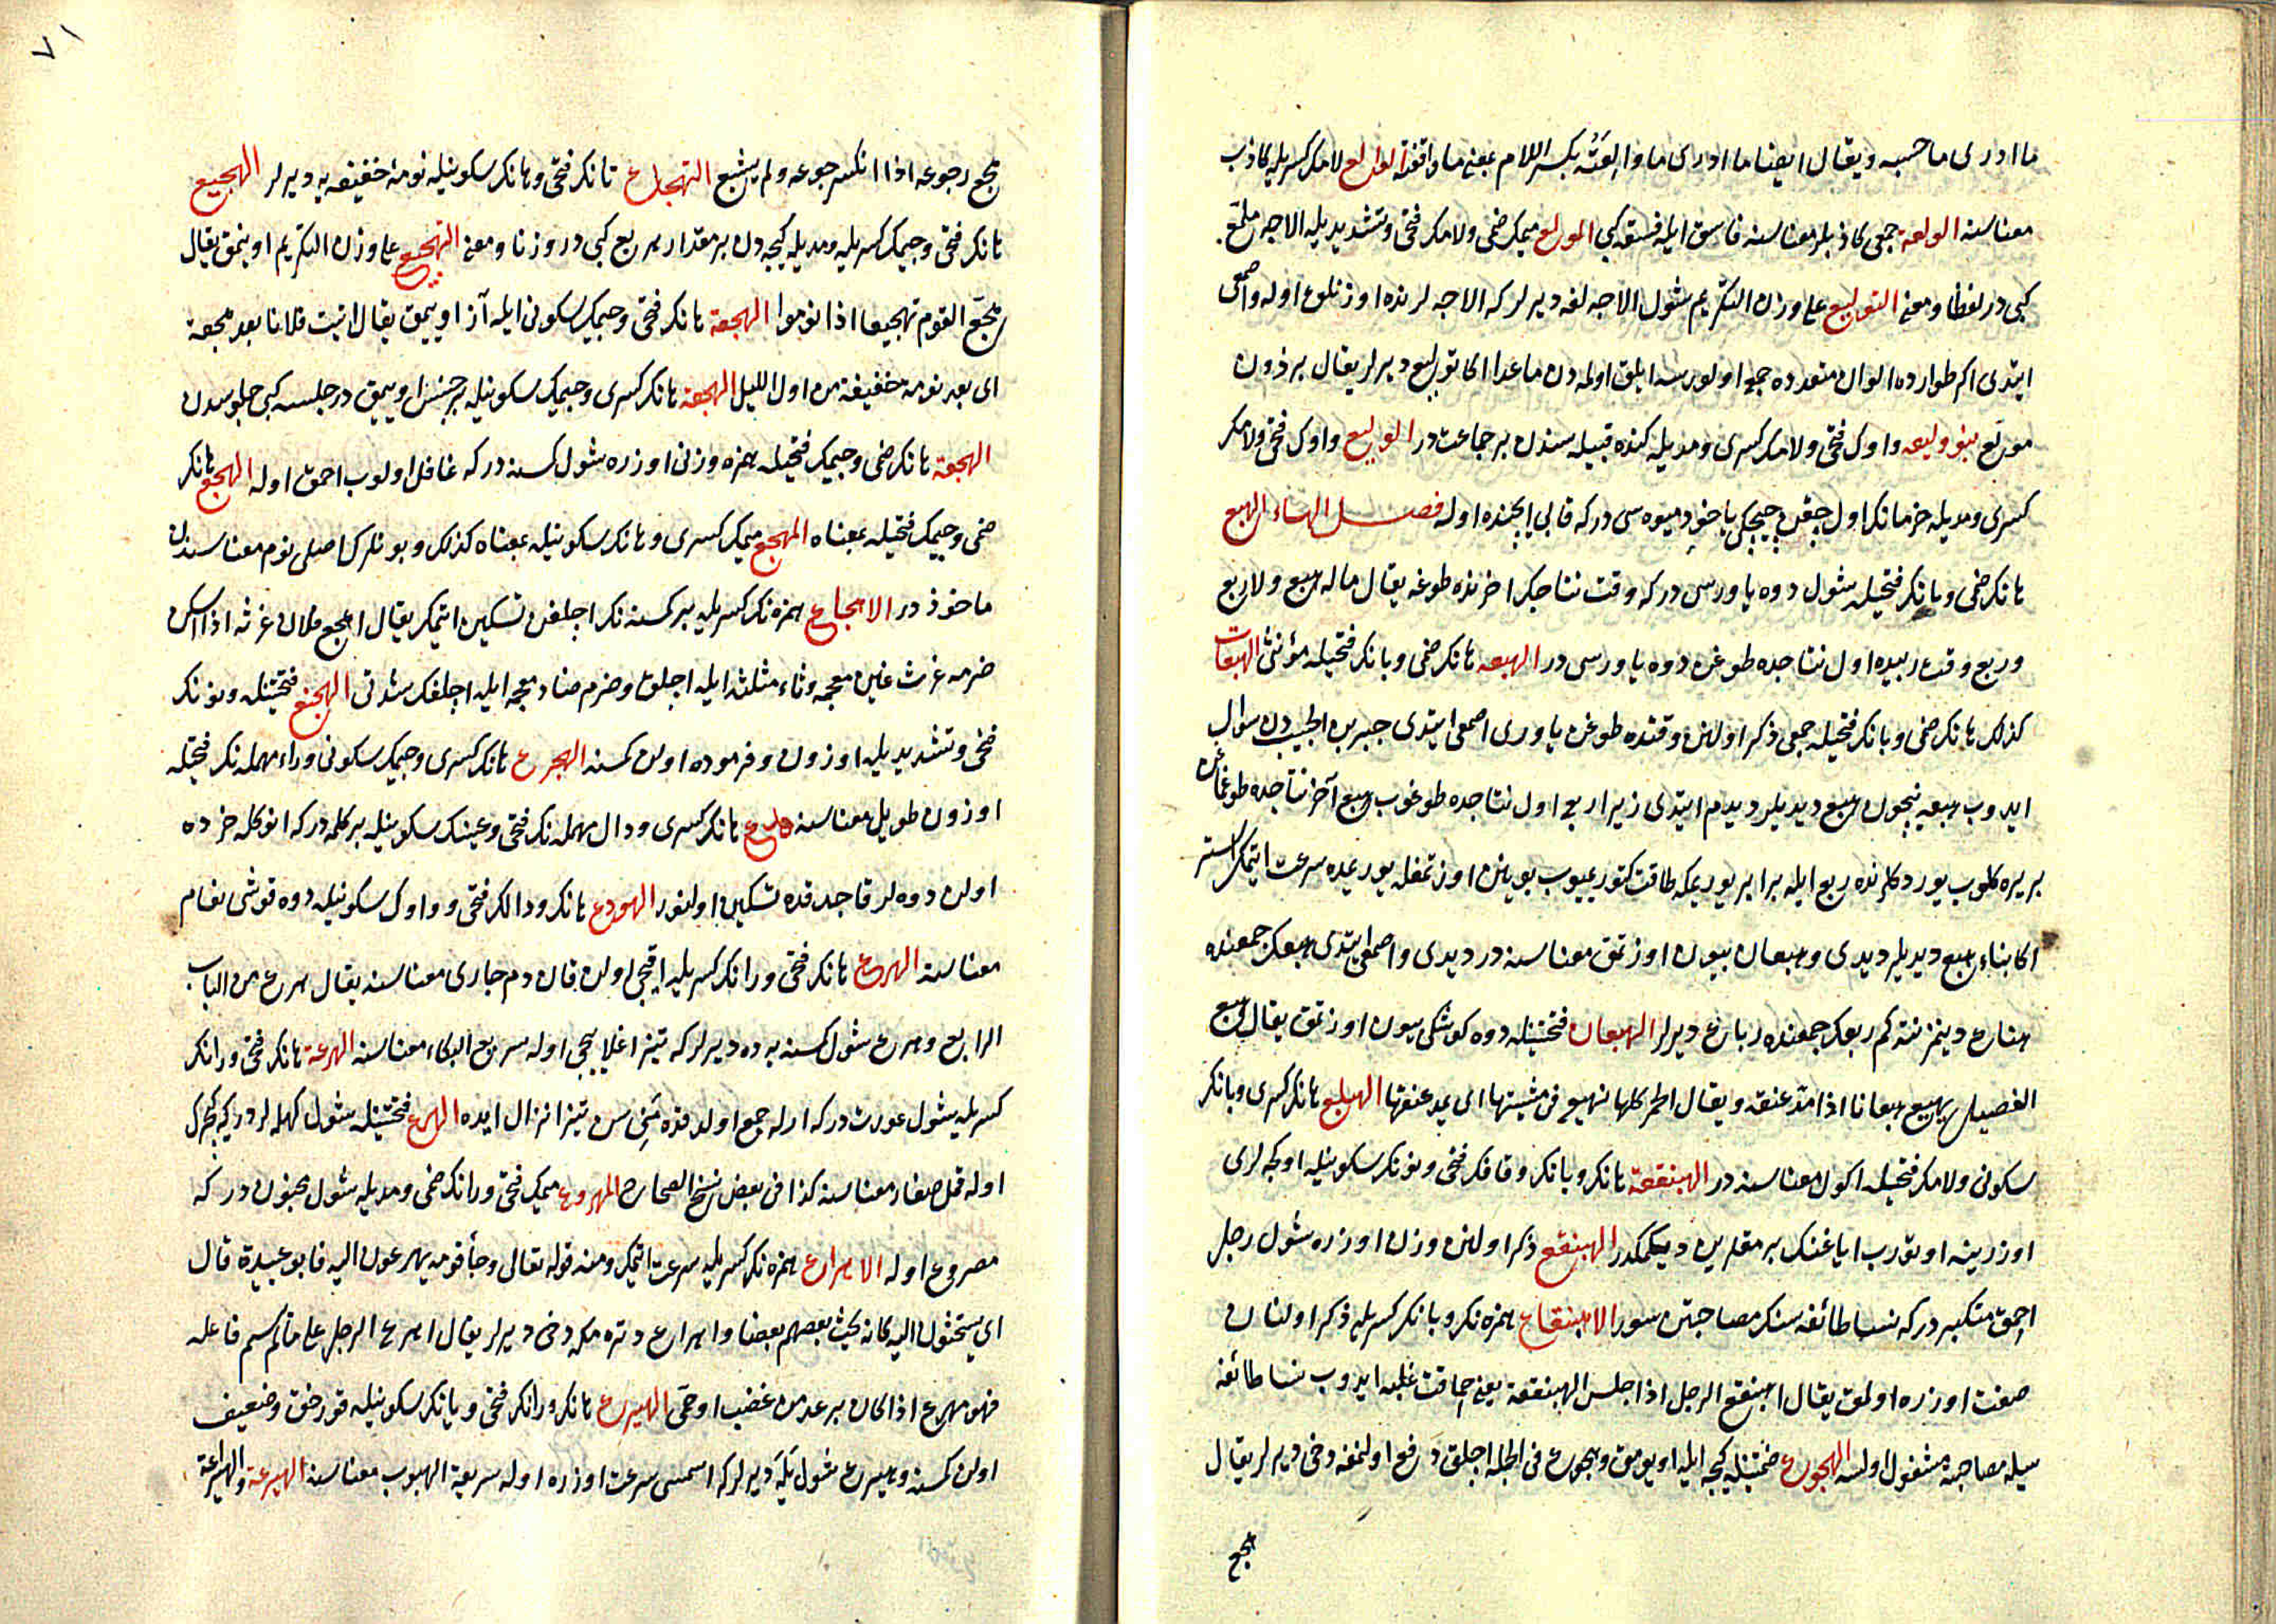 ما ادری ما حبسه ويقال ايضا ما ادری ما والعته بكسر اللام بمعنى ما واقفته الوالع لامك كسريله كاذب
معناسنه الولعة جمعی كاذبلر معناسنه فاسق ايله فسقه كبی المولع ميمك ضمی ولامك فتحی وتشديديله الاجه ملمّع
كبی در لفظا ومعنى التوليع على وزن التكريم شول الاجه لغه ديرلر كه الاجه لرنده اوزنلوغ اوله واصمعی
ايتدی اكر طوارده الوان متعدده جمع اولورسه ابلق اولمه دن ماعدا اكا توليع ديرلر يقال برذون
مولع بنو وليعه واوك فتحی ولامك كسری ومديله كنده قبيله سندن بر جماعت در الوليع واوك فتحی ولامك
كسری ومديله خرمانك اول چقن چيچكی ياخود ميوه سی در كه قابی ايچنده اوله فصل الهاء الهبع
هانك ضمی وبانك فتحيله شول دوه ياوروسی در كه وقت نتاجك اخرنده طوغه يقال ماله هبع ولا ربع
وربع وقت ربيعده اول نتاجده طوغن دوه ياوروسی در الهبعه هانك ضمی وبانك فتحيله مؤنثی الهبعات
كذلك هانك ضمی وبانك فتحيله جمعی ذكر اولنن وقتده طوغن ياوری اصمعی ايتدی جبر بن الحبيب دن سوال
ايدوب هبعه نيچون هبع ديديلر ديدم ايتدی زيرا ربع اول نتاجده طوغوب هبع آخر نتاجده طوغماغن
بريره كلوب يوردكلرنده ربع ايله برابر يوريمكه طاقت كتورميوب بوينن اوزتمغله يوريمده سرعت ايتمك استر
اكا بناء هبع ديديلر ديدی وهبعان بيون اوزتمق معناسنه در ديدی واصمعی ايتدی هبعك جمعنده
هباع دينمز نته كم ربعك جمعنده رباع ديرلر الهبعان فتحتينله دوه كوشكی بيون اوزتمق يقال هبع
الفصيل يهبع هبعانا اذا مد عنقه ويقال الحمر كلها تهبع فی مشيتها ای يمد عنقها الهبلع هانك كسری وبانك
سكونی ولامك فتحيله اكول معناسنه در الهبنقعة هانك وبانك وقافك فتحی ونونك سكونيله اوكچه لری
اوزرينه اوتورب اياغنك بر مقلرين ديكمكدر الهبنقع ذكر اولنن وزن اوزره شول رجل
احمق متكبر در كه نسا طائفه سنك مصاحبتن سور الاهبنقاع همزه نك وبانك كسريله ذكر اولنان
صفت اوزره اولمق يقال اهبنقع الرجل اذا جلس الهبنقعة يعنی حماقت غلبه ايدوب نسا طائفه
سيله مصاحبته مشغول اولسه الهجوع ضمتينله كيجه ايله اويومق وهجوع فی الجمله اجلق رفع اولنمغه دخی ديرلر يقال
هجع
٧١
هجع رجوعه اذا انكسر جوعه ولم يشبع التهجاع تانك فتحی وهانك سكونيله نومهٔ خفيفه يه ديرلر الهجيع
هانك فتحی وجيمك كسريله ومديله كيجه دن بر مقدار هريع كبی در وزنا ومعنى التهجيع على وزن التكريم اوينمق يقال
هجّع القوم تهجيعا اذا نوموا الهجعة هانك فتحی وجيمك سكونی ايله آز اوييمق يقال اتيت فلانا بعد هجعة
ای بعد نومة خفيفة من اول الليل الهجعه هانك كسری وجيمك سكونيله بر جنس اوييمق در جلسه كبی جلوسدن
الهجعة هانك ضمی وجيمك فتحيله همزه وزنی اوزره شول كسنه در كه غافل اولوب احمق اوله الهجع هانك
ضمی وجيمك فتحيله بمعناه المهجع ميمك كسری وهانك سكونيله بمعناه كذلك وبونلرك اصلی نوم معناسندن
ماخوذ در الاهجاع همزه نك كسريله بر كسنه نك اجلغن تسكين ايتمك يقال اهجع فلان غرثه اذا اسكن
ضرمه غرث غين معجمه وثاء مثلثه ايله اجلق وضرم ضاد معجمه ايله اجلغك شدتی الهجنع فتحتينله ونونك
فتحی وتشديديله اوزون وفرموده اولن كمسنه الهجرع هانك كسری وجيمك سكونی وراء مهمله نك فتحيله
اوزون طويل معناسنه هدع هانك كسری ودال مهمله نك فتحی وعينك سكونيله بر كلمه در كه انوكله خرده
اولن دوه لر قاجدقده تسكين اولنور الهودع هانك ودالك فتحی وواوك سكونيله دوه قوشی نعام
معناسنه الهرع هانك فتحی ورانك كسريله اقيجی اولن قان دم جاری معناسنه يقال هرع من الباب
الرابع وهرع شول كسنه يه ده ديرلر كه تيز اغلاييجی اوله سريع البكاء معناسنه الهرعة هانك فتحی ورانك
كسريله شول عورت در كه ارله جمع اولدقده منی سن تيز انزال ايده الهرع فتحتينله شول كهله لردر كه كجرك
اوله قمل صغار معناسنه كذا فی بعض نسخ الصحاح المهروع ميمك فتحی ورانك ضمی ومديله شول مجنون در كه
مصروع اوله الاهراع همزه نك كسريله سرعت ايتمك ومنه قوله تعالى وجاء قومه يهرعون اليه قال ابو عبيدة قال
ای يستحثون اليه كانه يحث بعضهم بعضا واهراع دتره مكه دخی ديرلر يقال اهرع الرجل على ما لم يسم فاعله
فهو مهرع اذا كان يرعد من غضب او حمی الهيرع هانك ورانك فتحی ويانك سكونيله قورخق وضعيف
اولن كمسنه وهيرع شول يله ديرلر كه اسمسی سرعت اوزره اوله سريعة الهبوب معناسنه الهيرعة والهراعة